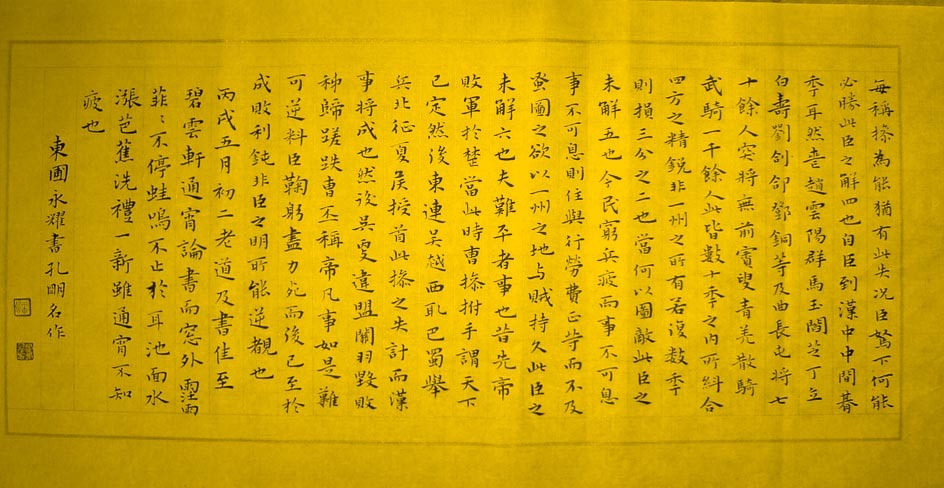 每稱操為能猶有此失況臣駑下何能
必勝此臣之解四也自臣到漢中中間朞
季耳然喪趙雲陽群馬玉閻芝丁立
白壽劉郃鄧銅等及曲長屯將七
十餘人突將無前賨叟青羌散騎
武騎一千餘人此皆數十季之內所糾合
四方之精銳非一州之所有若復數季
則損三分之二也當何以圖敵此臣之
未解五也今民窮兵疲而事不可息
事不可息則住與行勞費正等而不及
蚤圖之欲以一州之地与賊持久此臣之
未解六也夫難平者事也昔先帝
敗軍於楚當此時曹操拊手謂天下
已定然後東連吳越西取巴蜀舉
兵北征夏侯授首此操之失計而漢
事將成也然後吳更違盟關羽毀敗
秭歸蹉跌曹丕稱帝凡事如是難
可逆料臣鞠躬盡力死而後已至於
成敗利鈍非臣之明所能逆覩也
丙戌五月初二老道及書佳至
碧雲軒通宵論書而窓外霪雨
菲〻不停蛙鳴不止於耳池面水
漲芭蕉洗禮一新雖通宵不知
疲也
東圃永耀書孔明名作